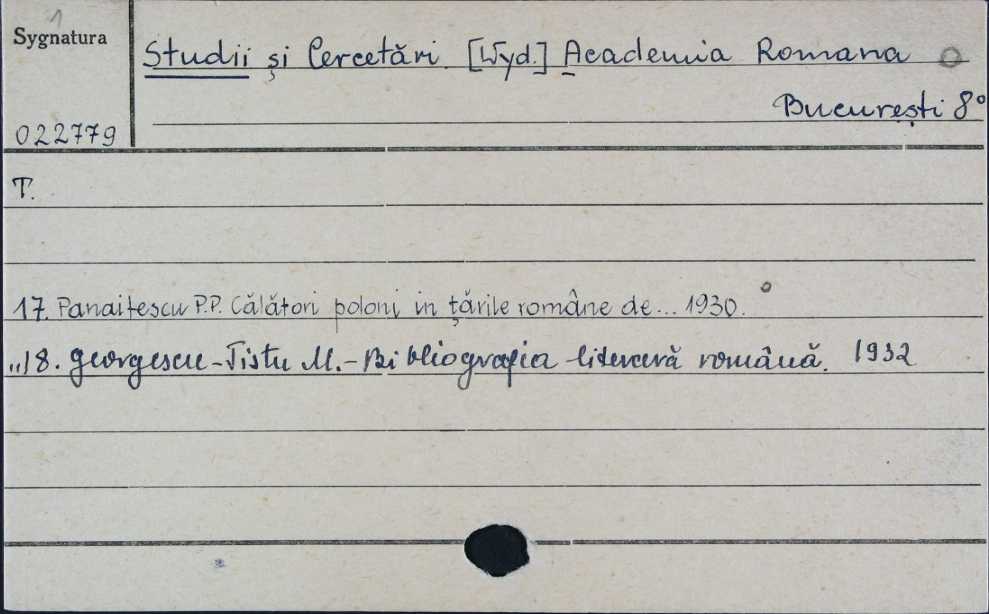 1
Sygnatura
Studii și Cercetări. [Wyd.] Academia Romana
București 8°
022779
T.
17. Panaitescu P.P. Călători poloni in țările române de... 1930.
„18. Georgescu-Tistu M.-Bibliografia literară română. 1932